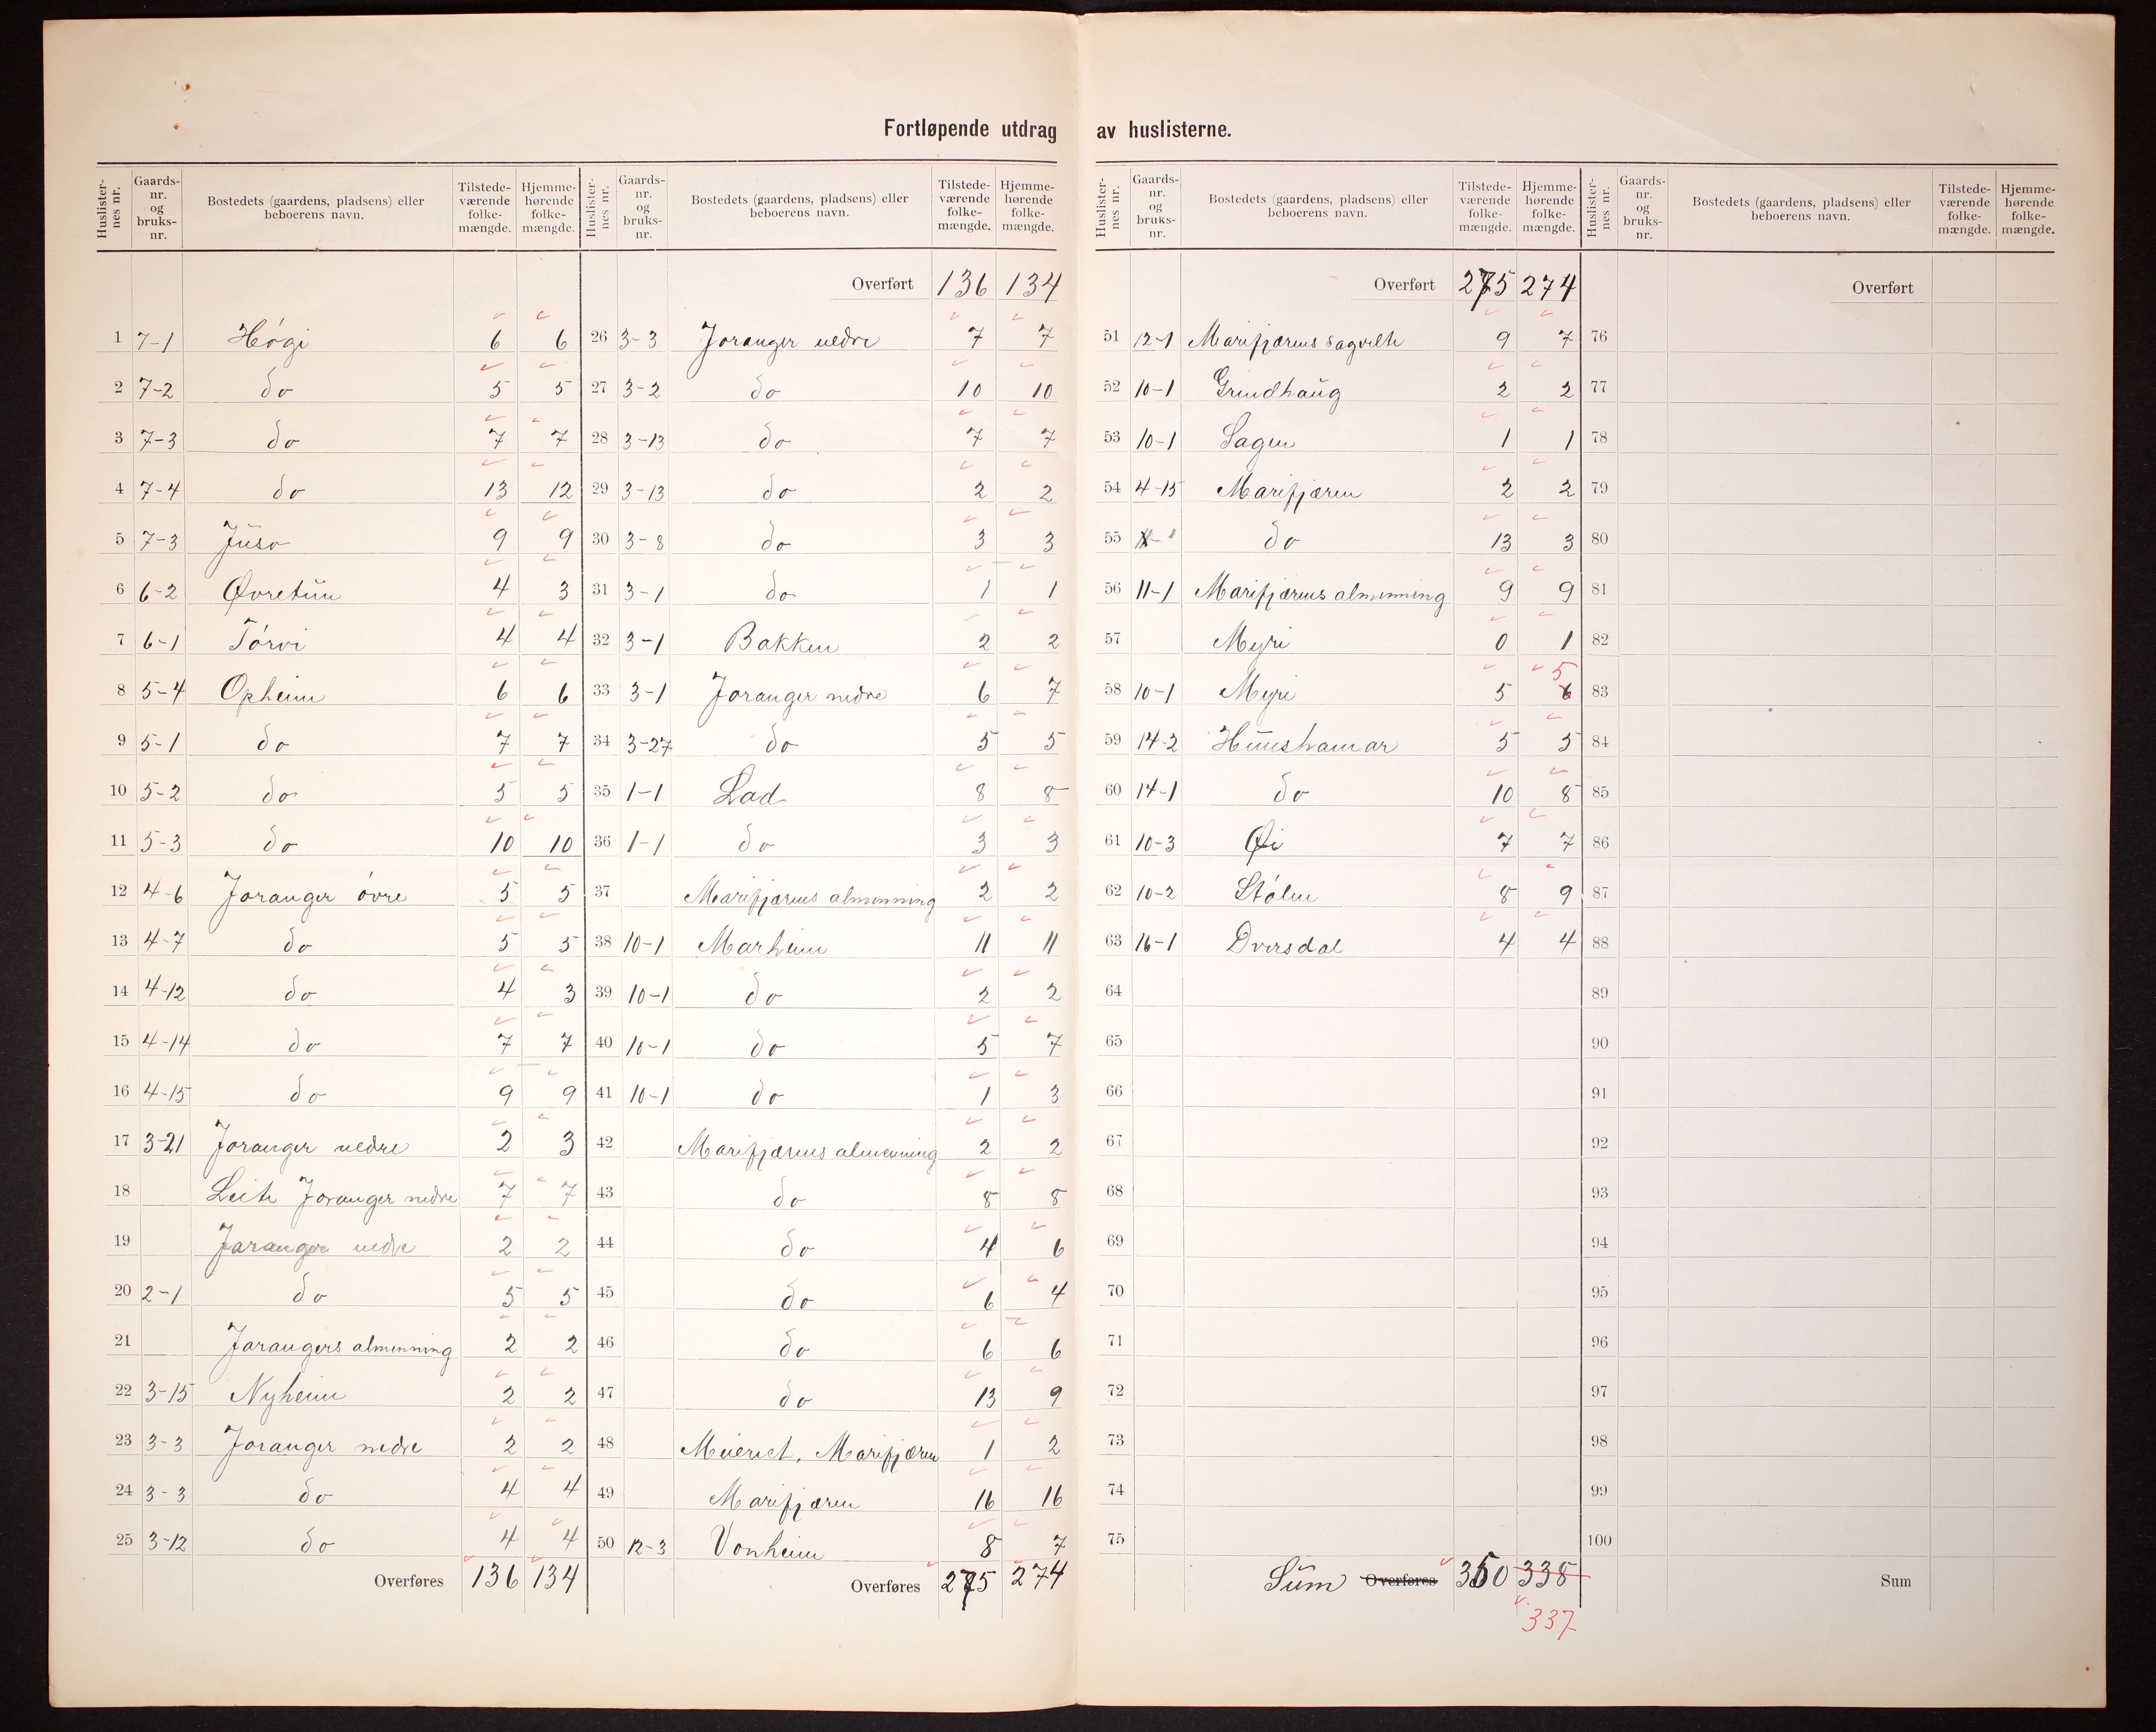 Fortløpende utdrag av huslisterne.
Huslister-nes nr. Gaards-nr. og bruks-nr. Bostedets (gaardens, pladsens) eller beboerens navn. Tilstede-værende folke-mængde. Hjemme-hørende folke-mængde.
1 7-1 Høgi 6 6
2 7-2 do 5 5
3 7-3 do 7 7
4 7-4 do 13 12
5 7-3 Juso 9 9
6 6-2 Øvretun 4 3
7 6-1 Tørvi 4 4
8 5-4 Opheim 6 6
9 5-1 do 7 7
10 5-2 do 5 5
11 5-3 do 10 10
12 4-6 Joranger øvre 5 5
13 4-7 do 5 5
14 4-12 do 4 3
15 4-14 do 7 7
16 4-15 do 9 9
17 3-21 Joranger nedre 2 3
18 Leite Joranger nedre 7 7
19 Joranger nedre 2 2
20 2-1 do 5 5
21 Jorangers almenning 2 2
22 3-15 Nyheim 2 2
23 3-3 Joranger nedre 2 2
24 3-3 do 4 4
25 3-12 do 4 4
Overføres 136 134
Huslister-nes nr. Gaards-nr. og bruks-nr. Bostedets (gaardens, pladsens) eller beboerens navn. Tilstede-værende folke-mængde. Hjemme-hørende folke-mængde.
Overført 136 134
26 3-3 Joranger nedre 7 7
27 3-2 do 10 10
28 3-13 do 7 7
29 3-13 do 2 2
30 3-8 do 3 3
31 3-1 do 1 1
32 3-1 Bakken 2 2
33 3-1 Joranger nedre 6 7
34 3-27 do 5 5
35 1-1 Lad 8 8
36 1-1 do 3 3
37 Marifjærens almenning 2 2
38 10-1 Marheim 11 11
39 10-1 do 2 2
40 10-1 do 5 7
41 10-1 do 1 3
42 Marifjærens almenning 2 2
43 do 8 8
44 do 4 6
45 do 6 4
46 do 6 6
47 do 13 9
48 Meieriet, Marifjæren 1 2
49 Marifjæren 16 16
50 12-3 Vonheim 8 7
Overføres 275 274
Huslister-nes nr. Gaards-nr. og bruks-nr. Bostedets (gaardens, pladsens) eller beboerens navn. Tilstede-værende folke-mængde. Hjemme-hørende folke-mængde.
Overført 275 274
51 12-1 Marifjærens sagvelte 9 7
52 10-1 Grindhaug 2 2
53 10-1 Sagen 1 1
54 4-15 Marifjæren 2 2
55 do 13 3
56 11-1 Marifjærens almenning 9 9
57 Myri 0 1
58 10-1 Myri 5 6 5
59 14-2 Hunshamar 5 5
60 14-1 do 10 8
61 10-3 Øi 7 7
62 10-2 Stølen 8 9
63 16-1 Dversdal 4 4
64
65
66
67
68
69
70
71
72
73
74
75
Sum Overføres 350 338
337
Huslister-nes nr. Gaards-nr. og bruks-nr. Bostedets (gaardens, pladsens) eller beboerens navn. Tilstede-værende folke-mængde. Hjemme-hørende folke-mængde.
Overført
76
77
78
79
80
81
82
83
84
85
86
87
88
89
90
91
92
93
94
95
96
97
98
99
100
Sum